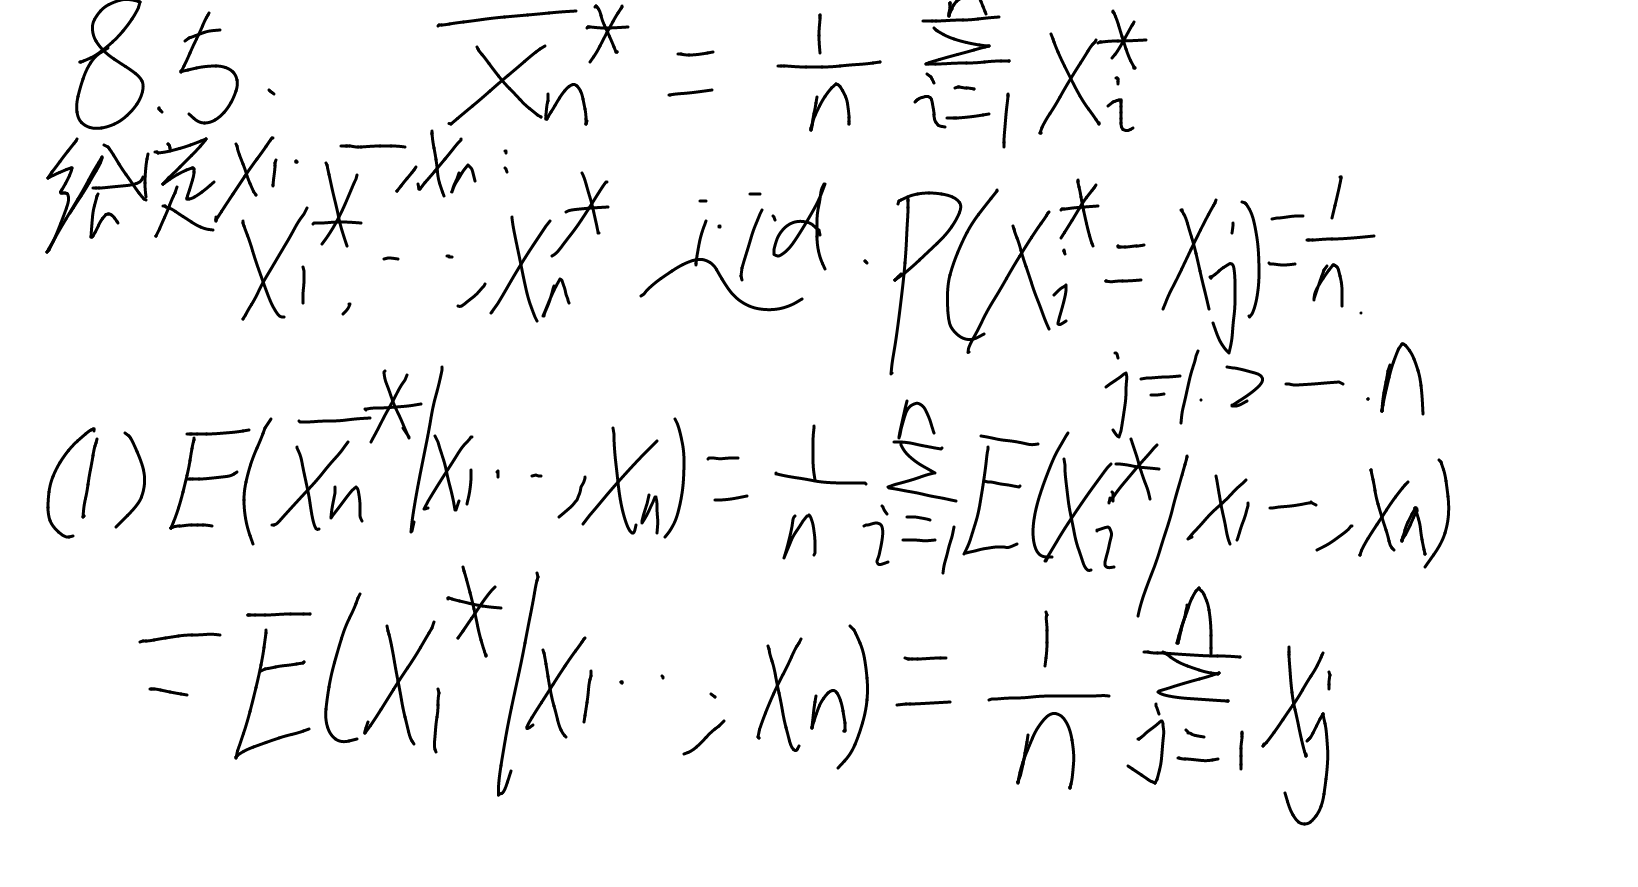 8.5. X̄n* = 1/n Σ_{i=1}^{n} Xi*
给定X1. —,Xn:
X1*, - ··, Xn* ~ iid. P(Xi* = Xj) = 1/n.
j=1.2 — .n
(1) E(X̄n* | X1 ·-·, Xn) = 1/n Σ_{i=1}^{n} E(Xi* | X1 —, Xn)
= E(X1* | X1 ···, Xn) = 1/n Σ_{j=1}^{n} Xj